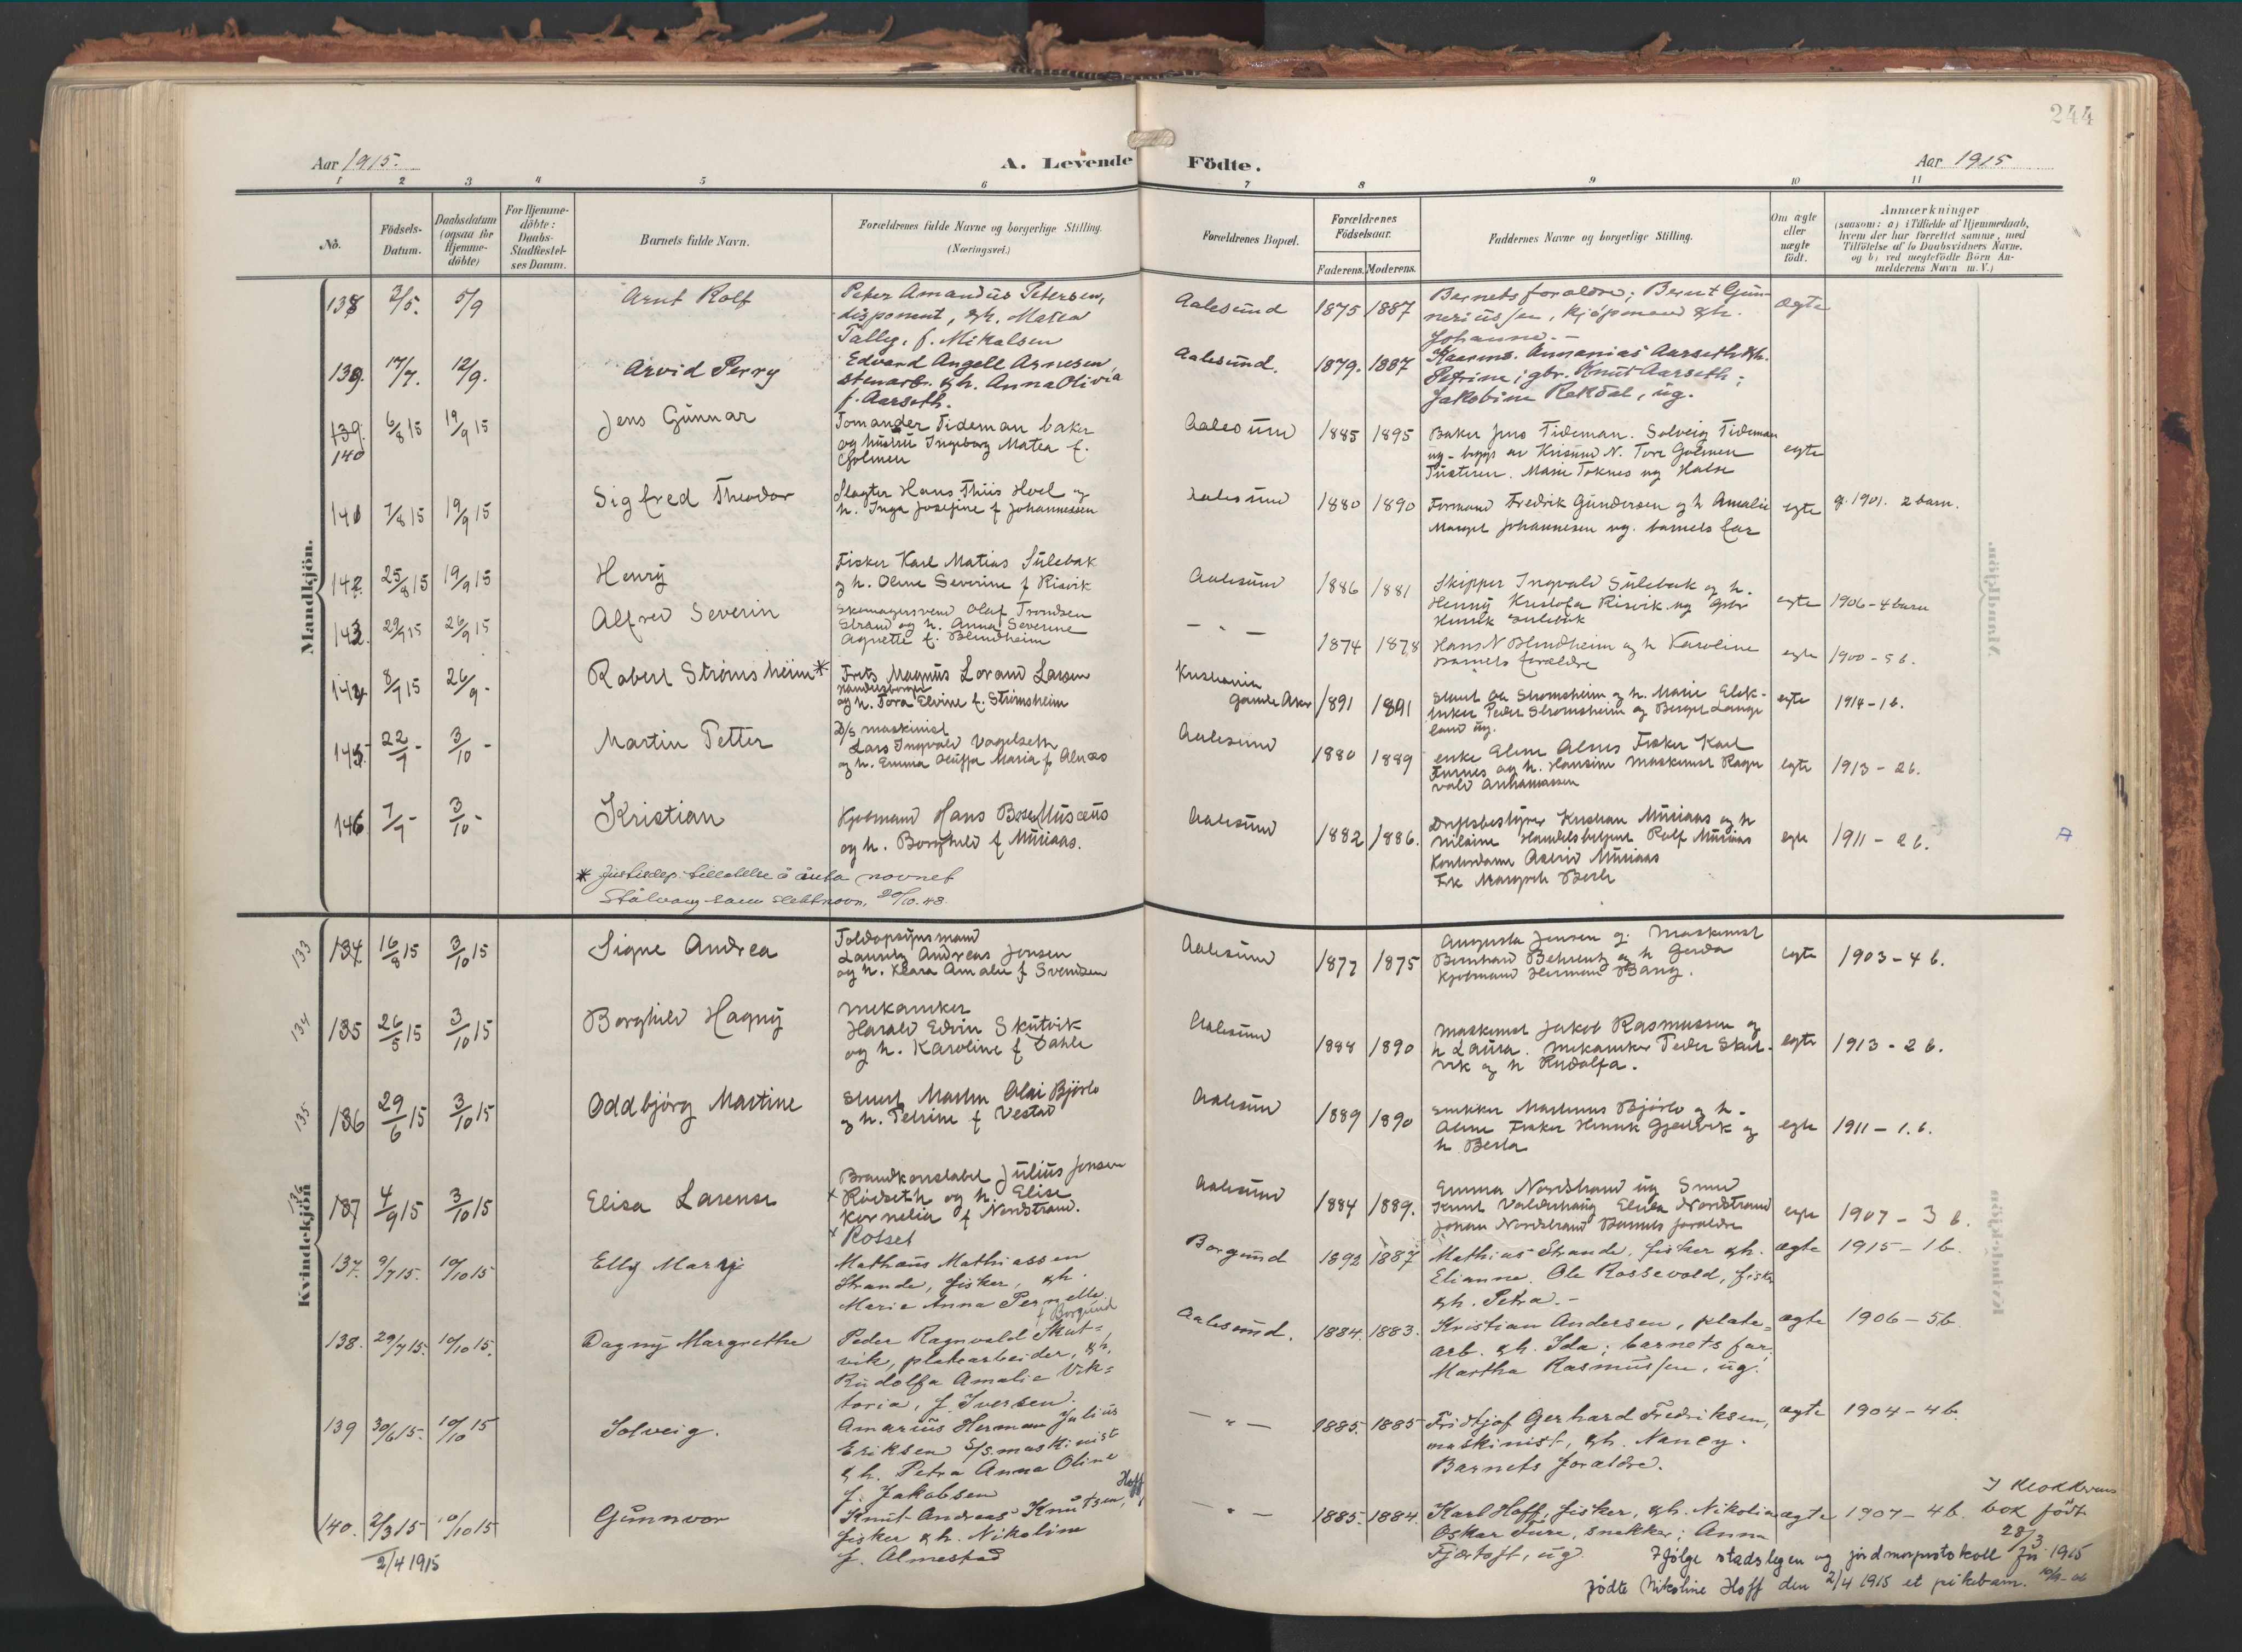 244
Aar 1915.
A. Levende Födte.
Aar 1915
1 2 3 4 5 6 7 8 9 10 11
No.
Födsels-
Datum.
Daabsdatum
(ogsaa for
Hjemme-
döbte)
For Hjemme-
döbte:
Daabs-
Stadfæstel-
ses Datum.
Barnets fulde Navn.
Forældrenes fulde Navne og borgerlige Stilling.
(Næringsvei.)
Forældrenes Bopæl.
Forældrenes
Födselsaar.
Faderens. Moderens.
Faddernes Navne og borgerlige Stilling.
Om ægte
eller
uægte
födt.
Anmærkninger
(saasom: a) i Tilfælde af Hjemmedaab,
hvem der har forrettet samme, med
Tilföielse af to Daabsvidners Navne.
og b) ved uægtefödte Börn An-
melderens Navn m. V.)
Mandkjön.
138 3/5. 5/9 Arnt Rolf
Peter Amandus Petersen,
disponent, &h. Matea
f. Mikalsen
Aalesund 1875 1887
Barnets foraldre; Bernt Gun-
neriussen, kjöpmand &h.
Johanne.-
ægte
139. 17/7. 12/9. Arvid Perry
Edvard Angell Arnesen
stenarb. &h. Anna Olivia
f. Aarseth.
Aalesund. 1879. 1887
Ananias Aarseth &h.
Petrine; gbr. Knut Aarseth;
Jakobine Rekdal, ug.
139.
140
6/8 15 19/9 15 Jens Gunnar
Tomander Tideman baker
og hustru Ingeborg Matea f.
Golmen
Aalesund 1885 1895
Baker Jens Tideman. Solveig Tideman
ug - av Krisund N. Tore Golmen
Tustern. Marie Toknes ug Halse
egte
141 7/8 15 19/9 15 Sigfred Theodor
Slagter Hans Thiis Hoel og
h. Inga Josefine f Johannessen
Aalesund 1880 1890
Formand Fredrik Gundersen og h Amalie
Margit Johannesen ug. barnets far
egte g. 1901. 2 barn.
142 25/8 15 19/9 15 Henry
Fisker Karl Matias Sulebak
og h. Oline Severine f Risvik
Aalesund 1886 1881
Skipper Ingvald Sulebak og h.
Henny Kristofa Risvik ug Gbr
Henrik Sulebak
egte 1906 - 4 barn
143. 29/7 15 26/9 15 Alfred Severin
Skomagersvend Olaf Trondsen
Strand og h. Anna Severine
Agnette f. Blindheim
— " — 1874 1878
Hans N Blindheim og h Karoline
barnets foraldre
egte 1900 - 5 b.
144 8/7 15 26/9 - Robert Strömsheim *
Frits Magnus Lorand Larsen
og h. Tora Elvine f. Strömsheim
Kristiania
Gamle Aker 1891 1891
Stuert Ole Strömsheim og h. Marie Elek-
triker Peder Strömsheim og Berget Lange
land ug.
egte 1914 - 1 b.
145. 22/7 - 3/10 - Martin Petter
D/s maskinist
Lars Ingvald Vagelseth
og h. Emma Maria f Alnæs
Aalesund 1880 1889
enke Aline Alnes Fisker Karl
Furnes og h. Hansine Maskinist Ragn
vald
egte 1913 - 2 b.
146 7/7 - 3/10 - Kristian
Kjöbmand Hans Musæus
og h. Borghild f Musiaas.
Aalesund 1882 1886.
Driftsbestyrer Kristian Musiaas og h
Nilsine Handelsbetjent Rolf Musiaas
Kontordame Astrid Musiaas
Frk Margreth
egte 1911 - 2 b.
A
* Justisdep. tillatelse å anta navnet
Stålvang som slektsnavn, 20/10.48
Kvindekjön
133 134. 16/8 15 3/10 15 Signe Andrea
Toldopsynsmand
Lauritz Andreas Jensen
og h. Klara Amalie f Svendsen
Aalesund 1877 1875
Augusta Jensen g. Maskinist
Bernhard Behrentz og h Gerda
Kjöbmand Herman Bang.
egte 1903 - 4 b.
134 135 26/5 15 3/10 15 Borghild Hagny
Mekaniker
Harald Edvin Skutvik
og h. Karoline f Dahle
Aalesund 1888 1890
Maskinist Jakob Rasmussen og
h Laura. Mekaniker Peder Skut-
vik og h Rudolfa.
egte 1913 - 2 b.
135 136 29/6 15 3/10 15 Oddbjörg Martine
Stuert Martin Olai Björlo
og h. Petrine f Vestad
Aalesund 1889 1890
Snekker Martinus Björlo og h.
Aline Fisker Henrik Gjerdvik og
h Berta
egte 1911 - 1. b.
136 137 4/9 15 3/10 15 Elisa Larense
Brandkonstabel Julius Jensen
x Rödseth og h. Elise
Kornelia f Nordstrand.
x Rotset
Aalesund 1884 1889.
Emma Nordstrand ug Smed
Knut Valderhaug Elisa Nordstrand
Johan Nordstrand Barnets foraldre
egte 1907 - 3 b.
137. 9/7 15. 10/10 15 Elly Mary
Mathæus Mathiassen
Strande, fisker, &h.
Marie Anna Pernelle
f Borgund
Borgund 1892 1887
Mathias Strande, fisker &h.
Elianne. Ole Rossevold, fisker
&h. Petra.-
ægte 1915 - 1 b.
138. 29/7 15. 10/10 15. Dagny Margrethe
Peder Ragnvald Skut=
vik, platearbeider, &h.
Rudolfa Amalie Vik=
toria, f. Iversen.
Aalesund. 1884. 1883.
Kristian Andersen, plate=
arb. &h. Ida; barnets far;
Martha Rasmussen, ug.
ægte 1906 - 5 b.
139 30/6 15. 10/10 15 Solveig.
Amarius Herman Julius
Eriksen S/S. maskinist
&h. Petra Anna Oline
f. Jakobsen
— " — 1885. 1885
Fridtjof Gerhard Fredriksen,
maskinist, &h. Nancy.
Barnets foraldre.
ægte 1904 - 4 b.
140. 2/3 15 10/10 15 Gunnvor
2/4 1915
Knut Andreas Knutsen, Hoff,
fisker &h. Nikoline
f. Almestad
— " — 1885. 1884.
Karl Hoff, fisker, &h. Nikolina
Oskar Ture, snekker; Anna
Fjörtoft, ug.
ægte 1907 - 4 b.
I klokkerens
bok födt
28/3
Ifölge stadslegen og jordmorprotokoll for 1915
födte Nikoline Hoff den 2/4 1915 et pikebarn.